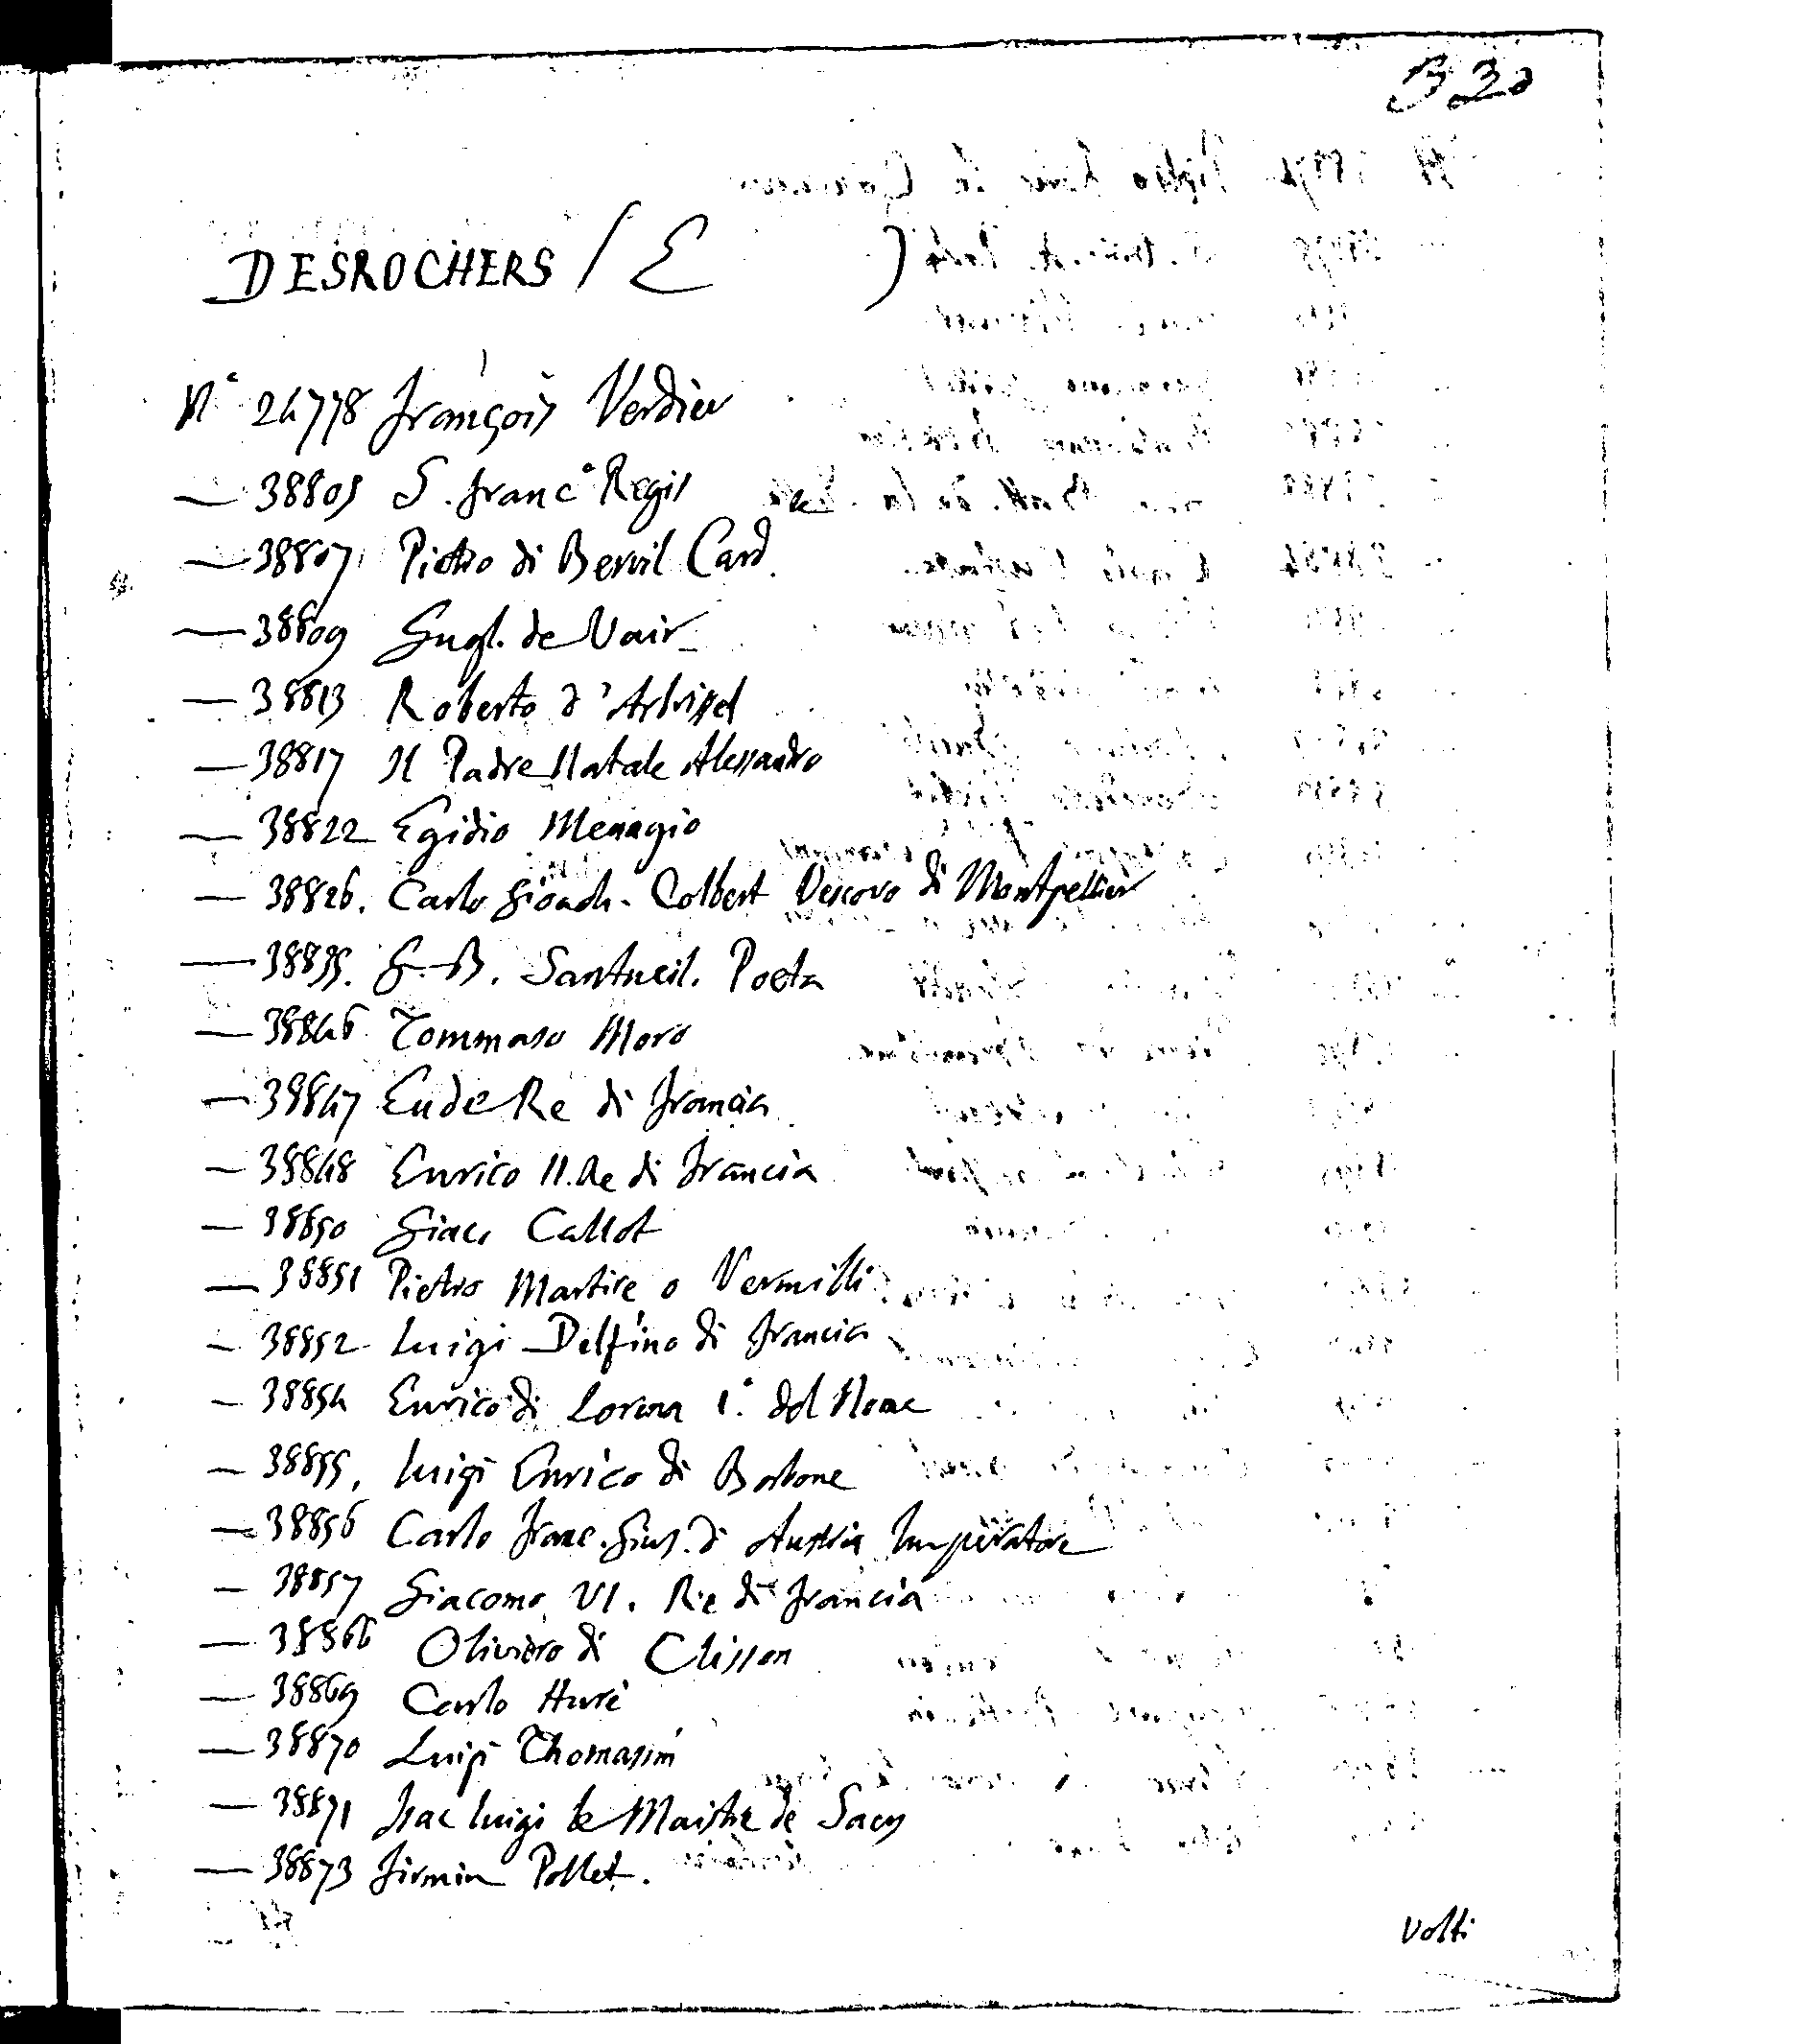 330
DESROCHERS (E )
N° 24778 François Verdier
— 38805 S. Franc° Regis
— 38807 Pietro di Bervil Card.
— 38809 Gugl. de Vair
— 38813 Roberto d'Arbrissel
— 38817 Il Padre Natale Alessandro
— 38822 Egidio Menagio
— 38826. Carlo Gioach. Colbert Vescovo di Montpellier
— 38835. G. B. Santueil. Poeta
— 38846 Tommaso Moro
— 38847 Eude Re di Francia
— 38848 Enrico II. Re di Francia
— 38850 Giac. Callot
— 38851 Pietro Martire o Vermilli
— 38852 Luigi Delfino di Francia
— 38854 Enrico di Lorena 1.° del Nome
— 38855. Luigi Enrico di Borbone
— 38856 Carlo Franc. Gius. di Austria Imperatore
— 38857 Giacomo VI. Re di Francia
— 38866 Oliviero di Clisson
— 38869 Carlo Huré
— 38870 Luigi Thomasin
— 38871 Isac Luigi le Maistre de Sacy
— 38873 Firmin Pollet.
Volti